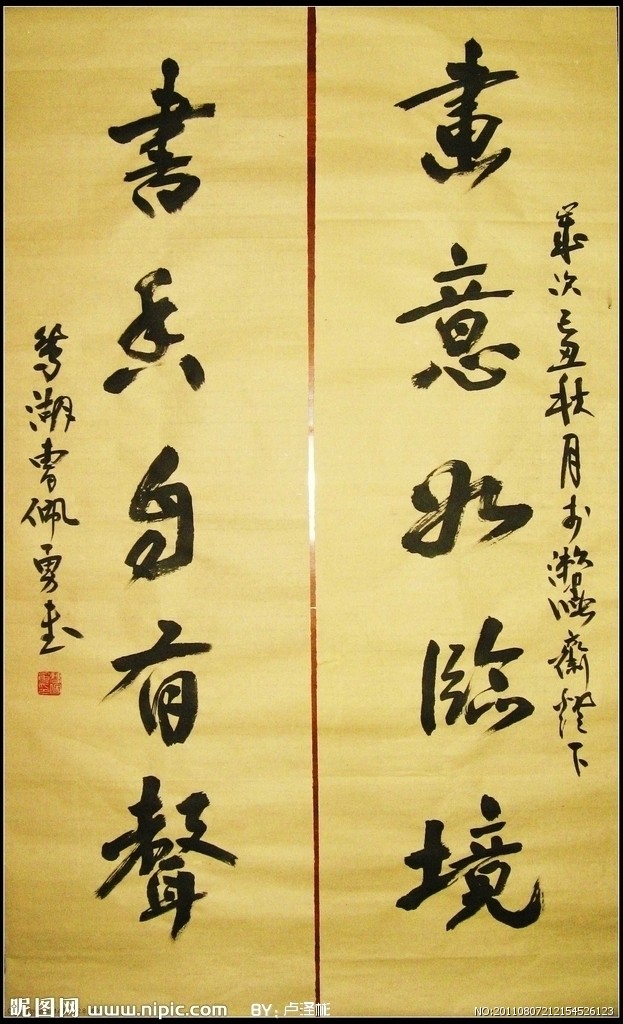 歲次己丑秋月於齋燈下
畫意如臨境
書香自有聲
湖曹佩勇書
昵图网 www.nipic.com BY: 卢泽
NO:20110807212154526123